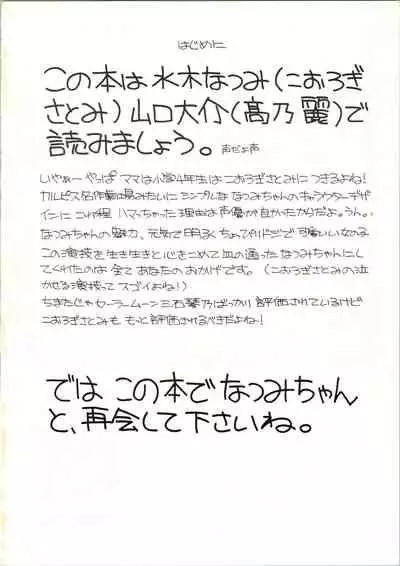 はじめに
この本は水木なつみ(こおろぎ
さとみ)山口大介(高乃麗)で
読みましょう。声だよ声
いやぁーやっぱ ママは小学4年生は こおろぎさとみに つきるよね!
カルピス名作劇場みたいに シンプルな なつみちゃんのキャラクターデザ
インに これ程 ハマっちゃった理由は声優が良かったからだよ。うん。
なつみちゃんの魅力、元気で明るく ちょっぴりドジで
この演技を生き生きと心をこめて血の通った なつみちゃんにし
てくれたのは 全て あなたのおかげです。(こおろぎさとみの泣
かせる演技って スゴイよね!)
ちまたじゃセーラームーン三石琴乃ばっかり 評価されているけど
こおろぎさとみも もっと評価されるべきだよね!
では この本で なつみちゃん
と、再会して下さいね。